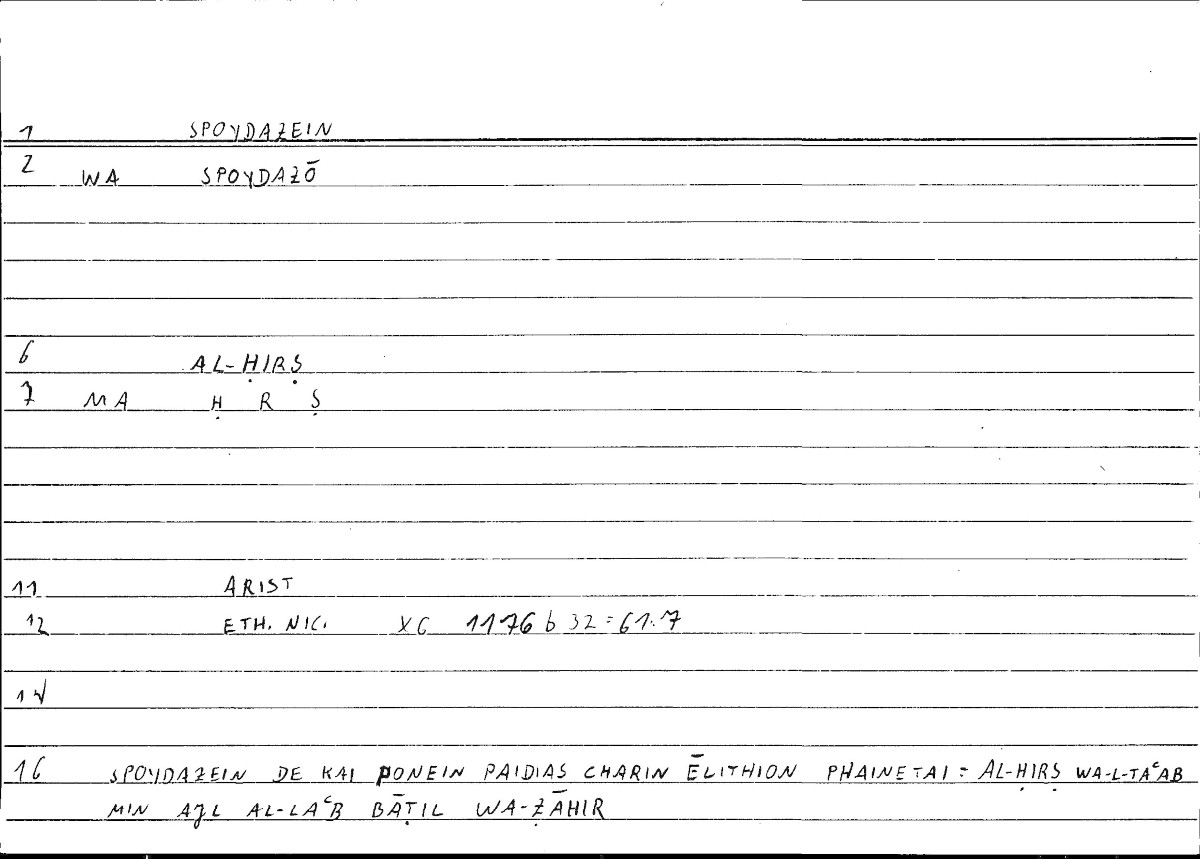 1 SPOYDAZEIN
2 WA SPOYDAZŌ
6 AL-ḤIRṢ
7 MA Ḥ R Ṣ
11 ARIST
12 ETH. NIC. X6 1176 b 32 = 61.7
14
16 SPOYDAZEIN DE KAI PONEIN PAIDIAS CHARIN ĒLITHION PHAINETAI = AL-ḤIRṢ WA-L-TAᶜAB
MIN AJL AL-LAᶜB BĀṬIL WA-ẒĀHIR